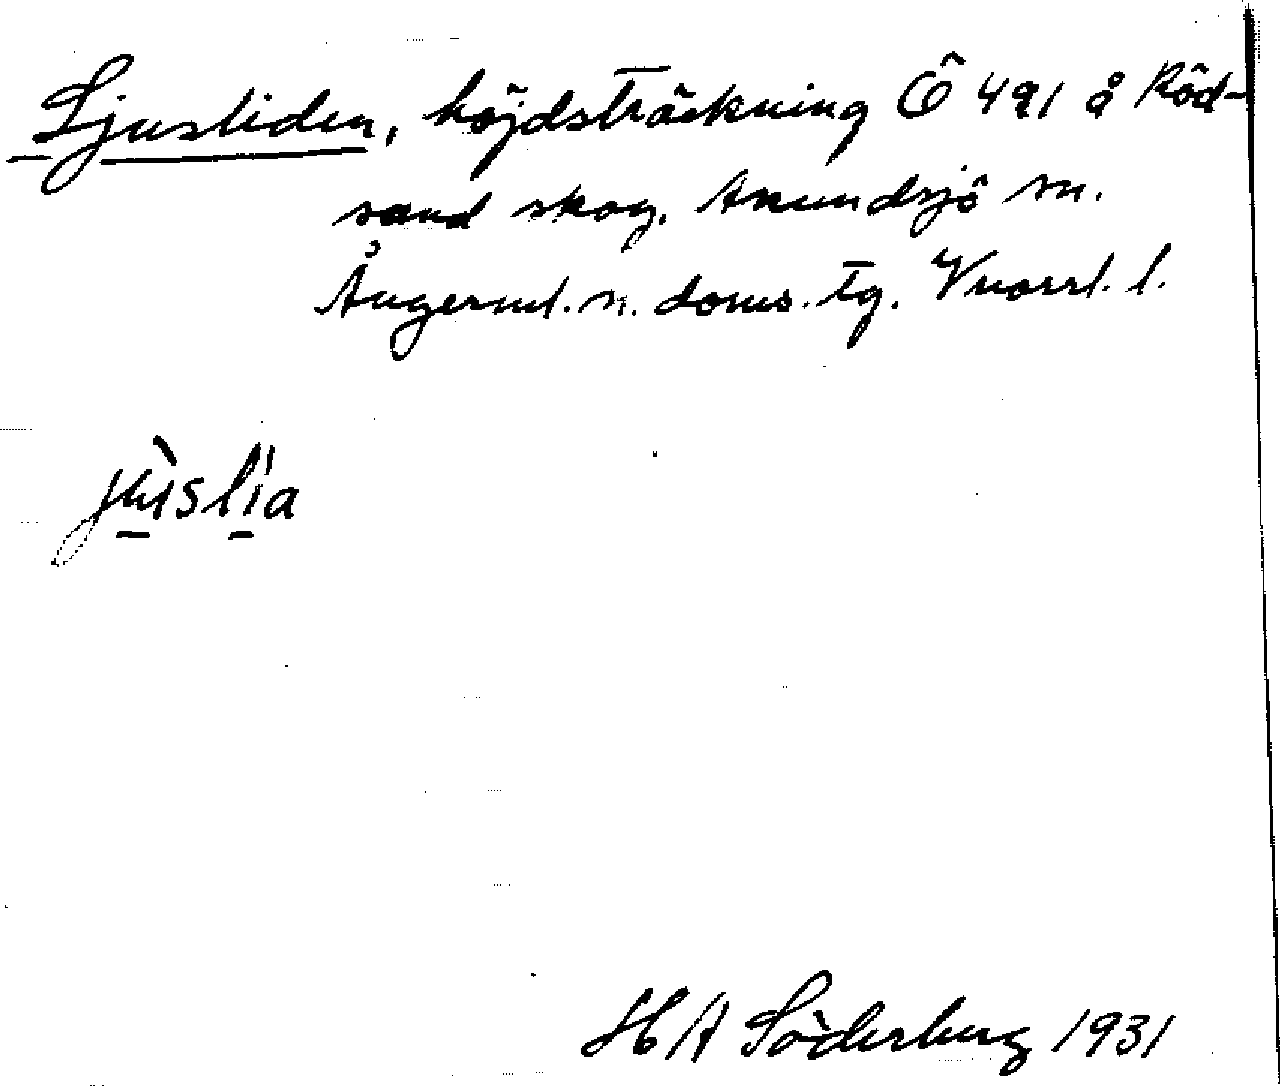 Ljusliden, höjdsträckning Ö 491 å Röd-
sand skog, Anundsjö sn.
Ångerml. n. doms. tg. Vnorrl. l.
jùslı̀a
H A Söderberg 1931